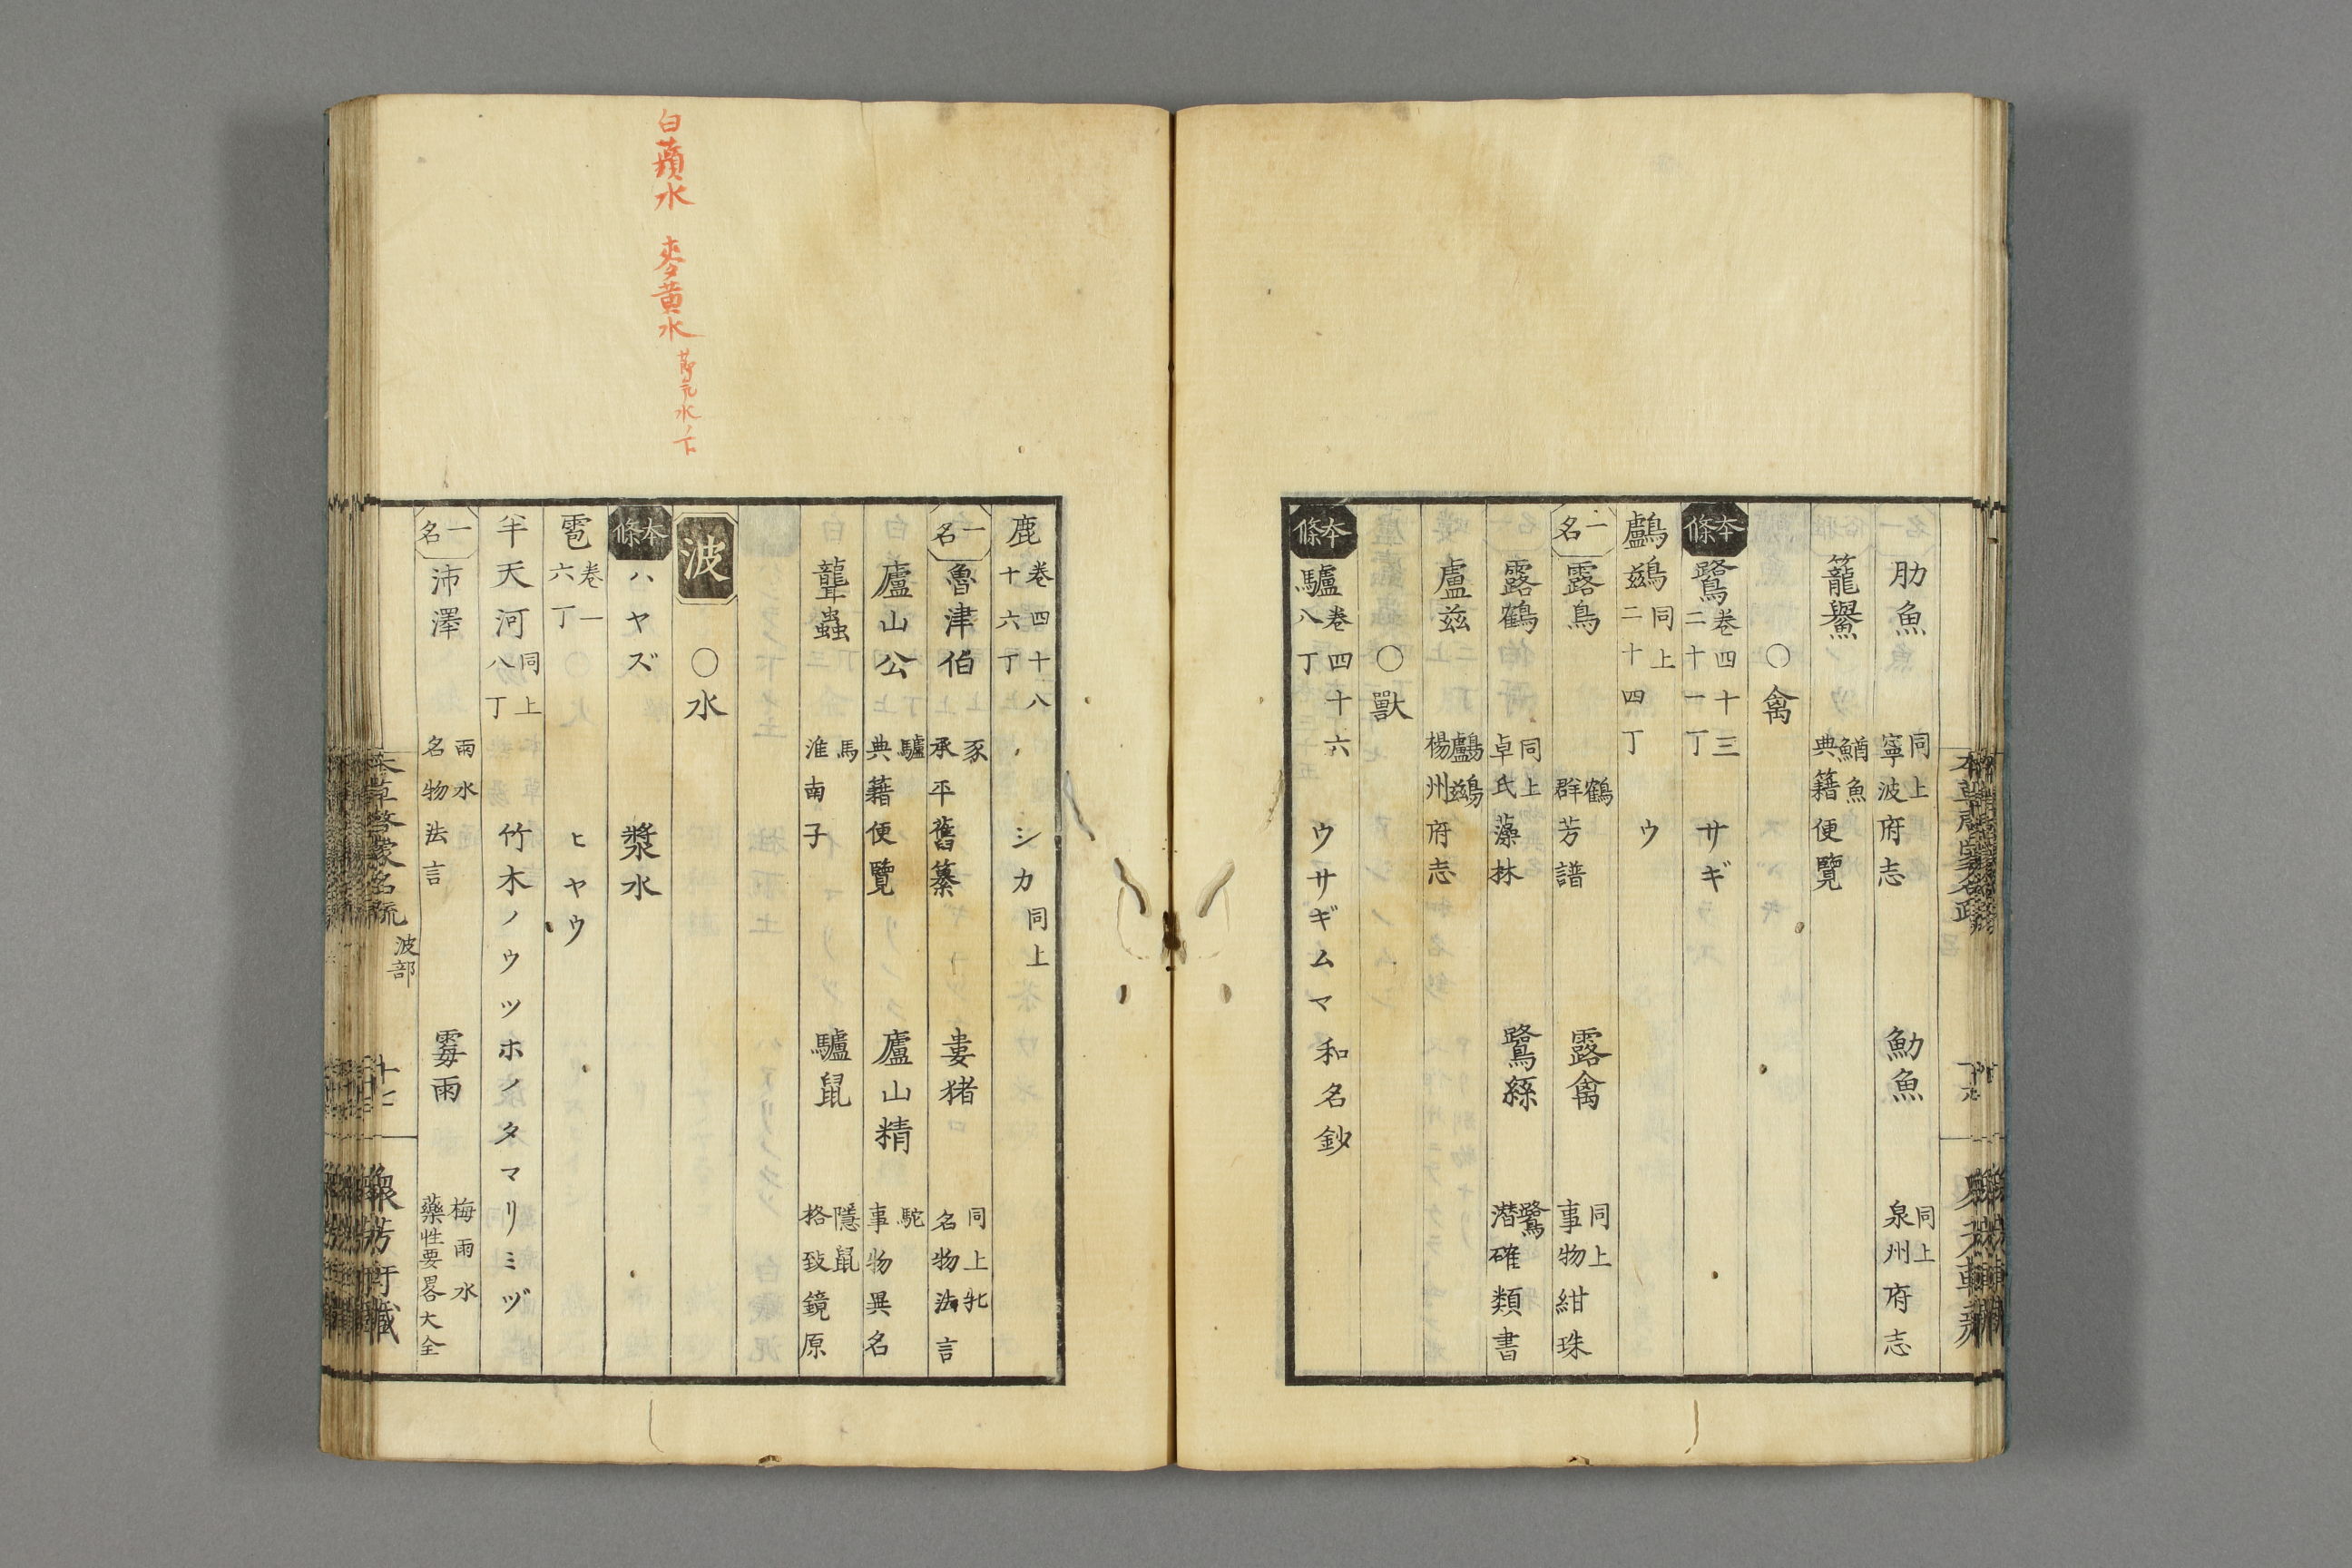 肋魚 同上 寧波府志 魩魚 同上 泉州府志
籠𩺰 鰌魚 典籍便覽
○禽
本條 鷺 卷四十三 二十一丁 サギ
鸕鷀 同上 二十四丁 ウ
一名 露鳥 鶴 群芳譜 露禽 同上 事物紺珠
露鶴 同上 卓氏藻林 鷺絲 鷺 潜確類書
盧茲 鸕鷀 楊州府志
○獸
本條 驢 卷四十六 八丁 ウサギムマ 和名鈔
鹿 卷四十八 十六丁 シカ 同上
一名 魯津伯 豕 承平舊纂 婁猪 同上牝 名物法言
廬山公 驢 典藉便覽 廬山精 駝 事物異名
聾蟲 馬 淮南子 驢鼠 隱鼠 格致鏡原
波 ○水
本條 ハヤズ 漿水
雹 卷一 六丁 ヒヤウ
半天河 同上 八丁 竹木ノウツホノタマリミヅ
一名 沛澤 雨水 名物法言 霉雨 梅雨水 藥性要畧大全
本草啓蒙名疏 波部 十七 衆芳軒藏
白蘋水 麥黄水 節元水ノ下